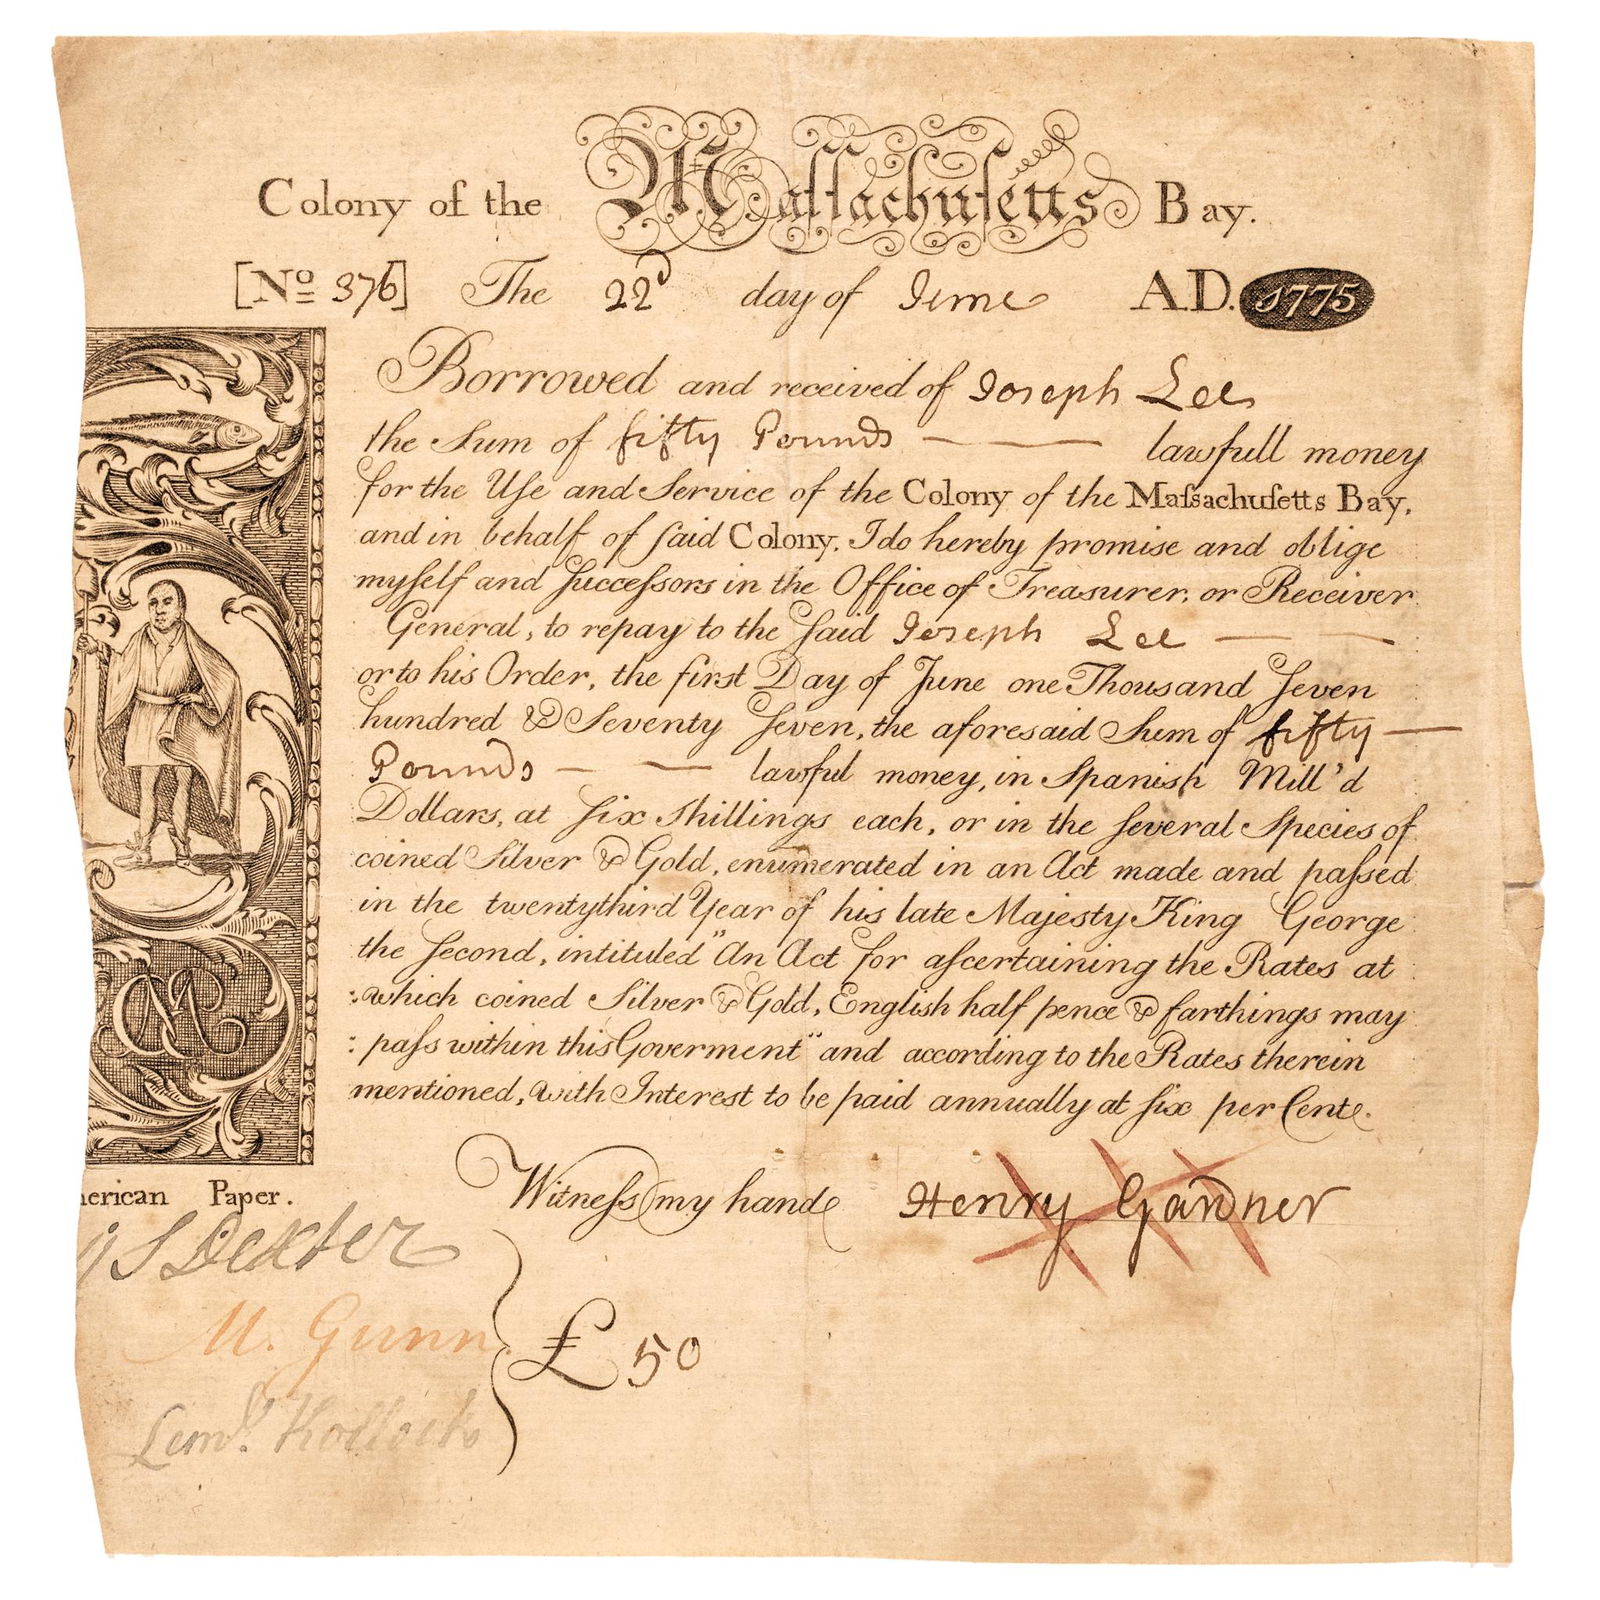 Colony of the Maſſachuſetts Bay.
[No 376] The 22d day of June A.D. 1775
Borrowed and received of Joseph Lee
the Sum of fifty Pounds — — lawfull money
for the Uſe and Service of the Colony of the Maſsachuſetts Bay,
and in behalf of ſaid Colony, I do hereby promise and oblige
myſelf and Succeſsors in the Office of Treasurer, or Receiver
General, to repay to the ſaid Joseph Lee — —
or to his Order, the first Day of June one Thousand Seven
hundred & Seventy Seven, the aforesaid Sum of fifty —
Pounds — — lawful money, in Spanish Mill'd
Dollars, at Six Shillings each, or in the ſeveral Species of
coined Silver & Gold, enumerated in an Act made and paſsed
in the twentythird Year of his late Majesty King George
the Second, intituled "An Act for aſcertaining the Rates at
:which coined Silver & Gold, English half pence & farthings may
: paſs within this Goverment" and according to the Rates therein
mentioned, with Interest to be paid annually at Six per Cent.
Witneſs my hand Henry Gardner
erican Paper.
S Dexter
M. Gunn.
Leml. Kollock
£ 50